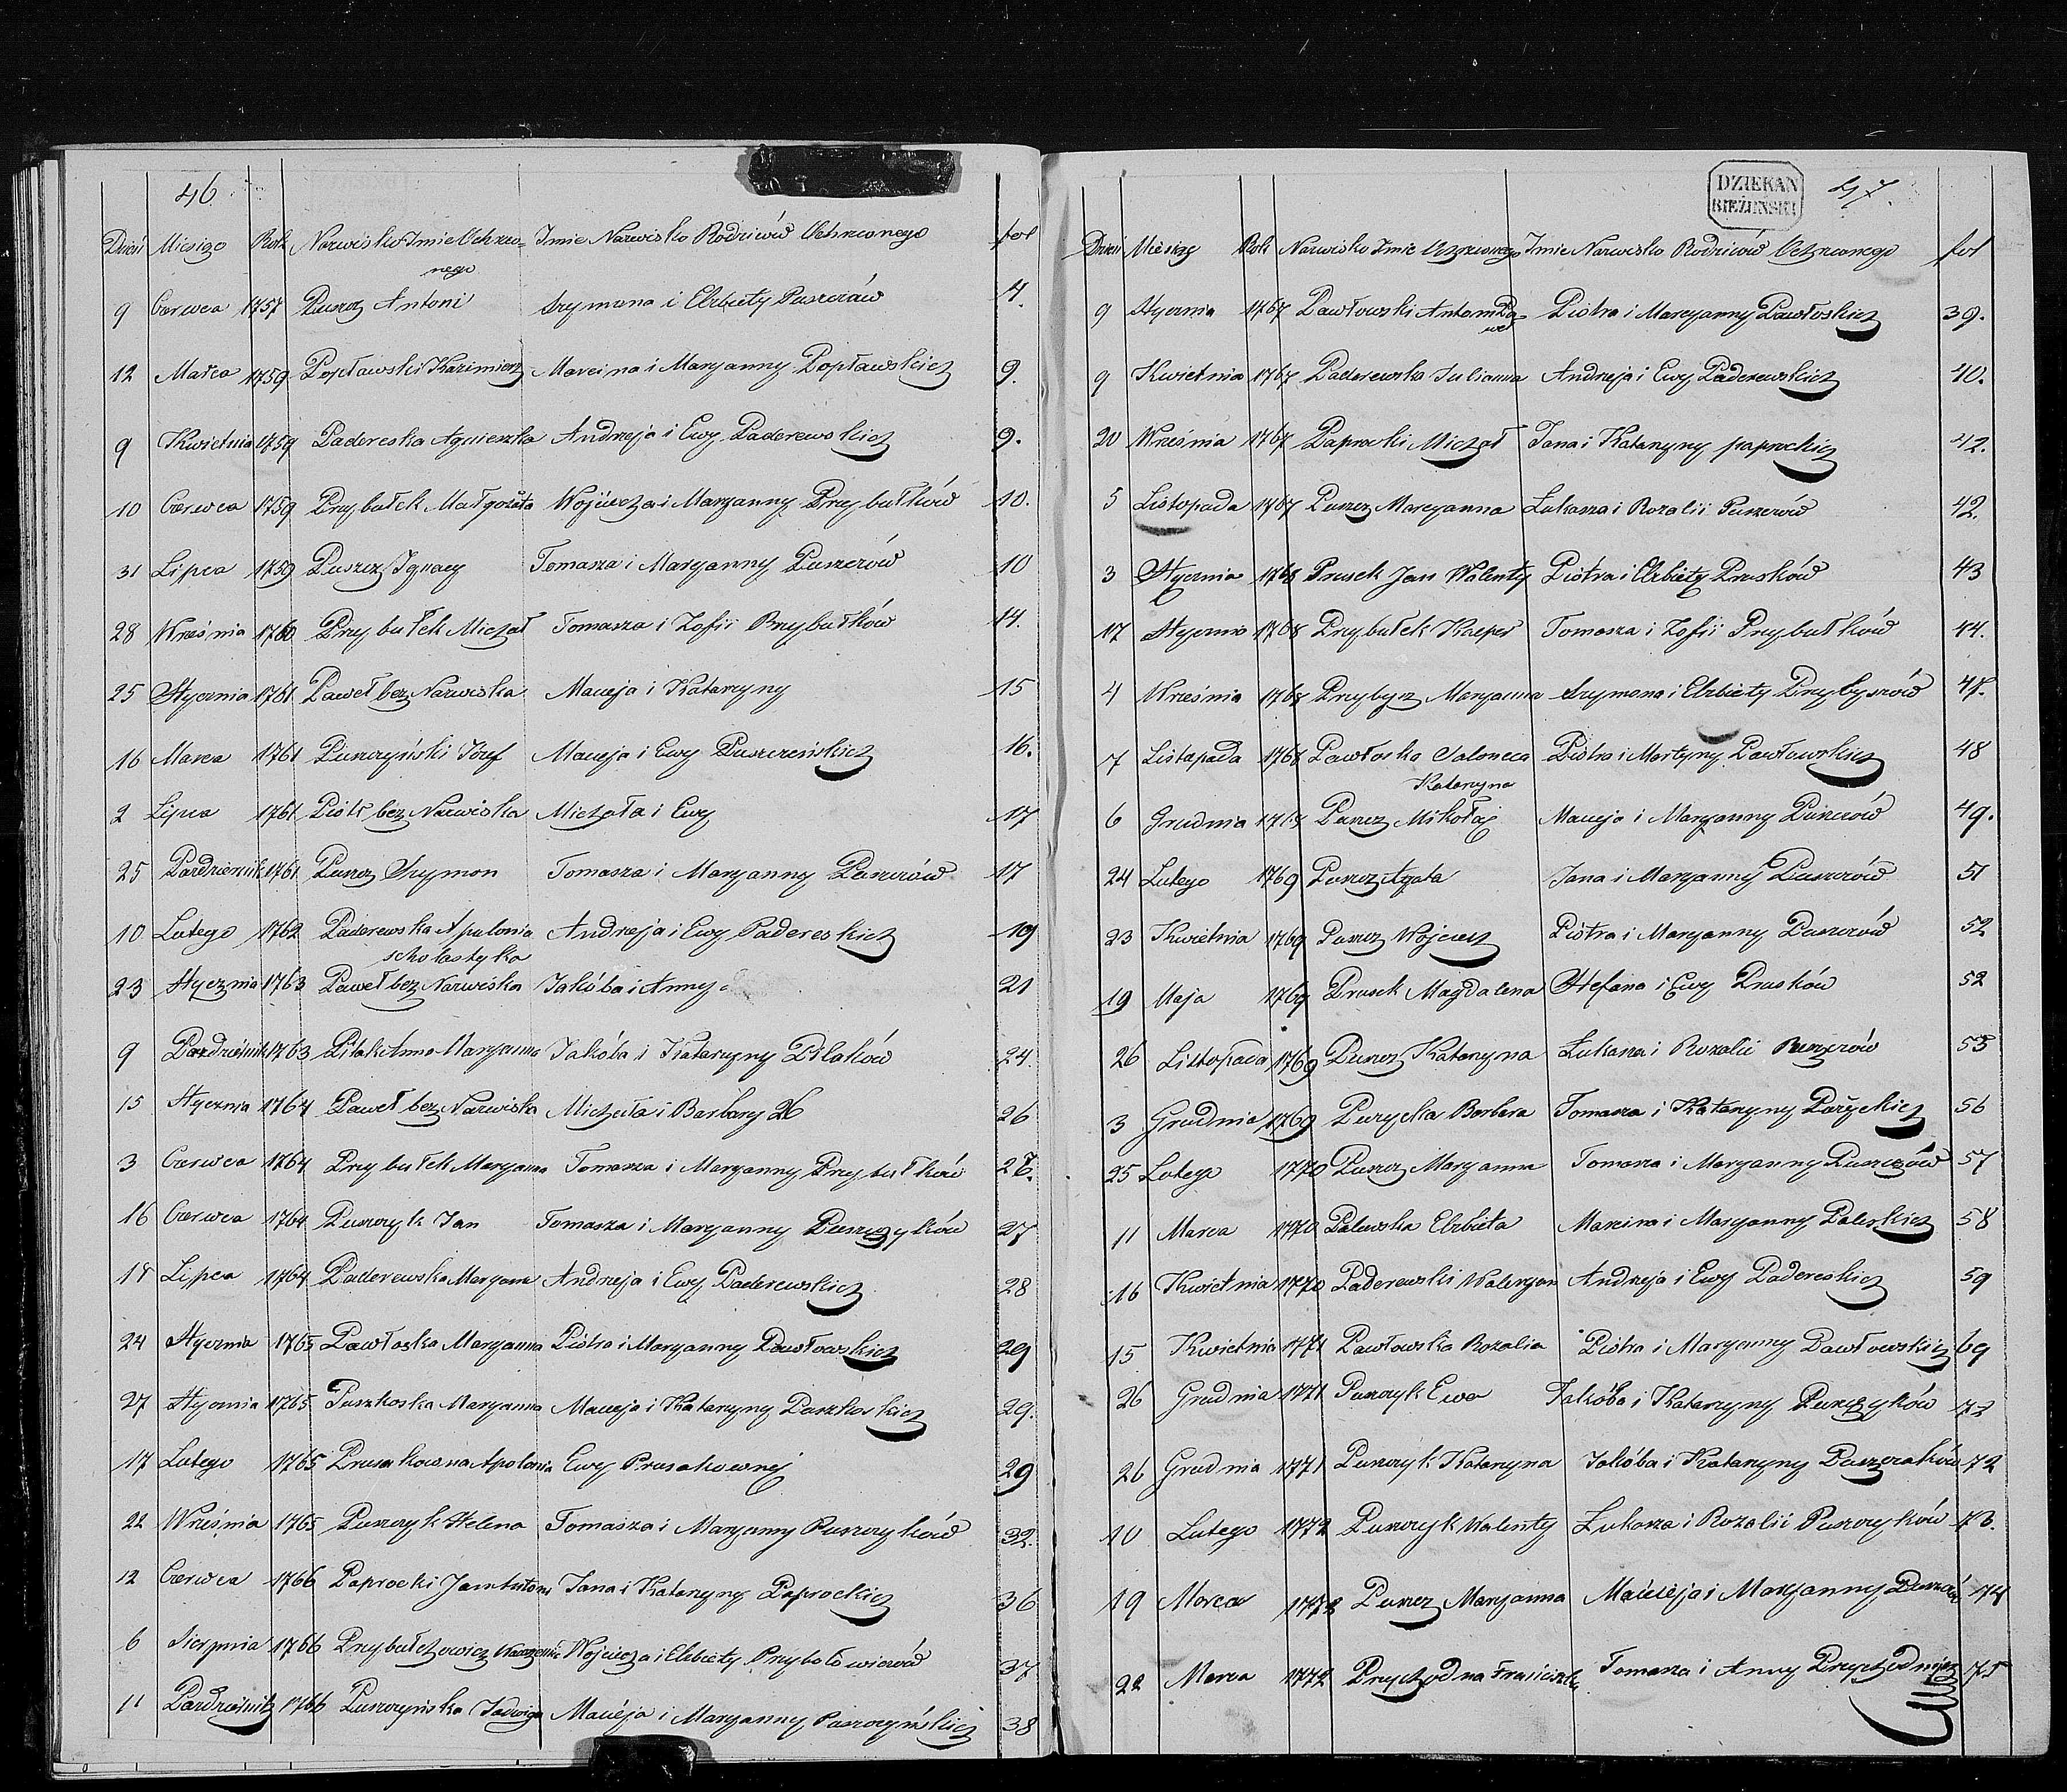 46
Dzień Miesiąc Rok Nazwisko Imie Ochrzco= Imie Nazwisko Rodziców Ochrzconego fol
nego
9 Czerwca 1757 Puszcz Antoni Szymona i Elzbiety Puszczów 4.
12 Marca 1759 Popławski Kazimierz Marcina i Maryanny Popławskich 9.
9 Kwietnia 1759 Padereska Agnieszka Andrzeja i Ewy Paderewskich 9.
10 Czerwca 1759 Przybułek Małgorzata Wojciecha i Maryanny Przybułków 10.
31 Lipca 1759 Puszcz Ignacy Tomasza i Maryanny Puszczów 10
28 Wrzesnia 1760 Przybułek Michał Tomasza i Zofii Przybułków 14.
25 Stycznia 1761 Paweł bez Nazwiska Macieja i Katarzyny 15
16 Marca 1761 Puszczyński Józef Macieja i Ewy Puszczeńskich 16.
2 Lipca 1761 Piotr bez Nazwiska Michała i Ewy 17
25 Pazdziernik 1761 Puszcz Szymon Tomasza i Maryanny Puszczów 17
10 Lutego 1762 Paderewska Apulonia Andrzeja i Ewy Padereskich 19
scholastyka
23 Stycznia 1763 Paweł bez Nazwiska Jakóba i Anny 21
9 Pazdziernik 1763 Pilak Anna Maryanna Jakóba i Katarzyny Pilaków 24.
15 Stycznia 1764 Paweł bez Nazwiska Michała i Barbary 26 26
3 Czerwca 1764 Przybułek Maryanna Tomasza i Maryanny Przybułków 26.
16 Czerwca 1764 Puszczyk Jan Tomasza i Maryanny Puszczyków 27
18 Lipca 1764 Paderewska Maryana Andrzeja i Ewy Paderewskich 28
24 Stycznia 1765 Pawłoska Maryanna Piotra i Maryanny Pawłowskich 29
27 Stycznia 1765 Puszkoska Maryanna Macieja i Katarzyny Puszkoskich 29.
17 Lutego 1765 Prusakowna Apolonia Ewy Prusakownej 29
22 Wrzesnia 1765 Puszczyk Helena Tomasza i Maryanny Puszczyków 32.
12 Czerwca 1766 Paprocki Jan Antoni Jana i Katarzyny Paprockich 36
6 Sierpnia 1766 Przybułchowicz Wojciecha i Elzbiety 37
11 Pazdziernik 1766 Puszczyńska Jadwiga Macieja i Maryanny Puszczyńskich 38
DZIEKAN
BIEŻUŃSKI
47
Dzień Miesiąc Rok Nazwisko Imie Ochrzconego Imie Nazwisko Rodziców Ochrzconego fol
9 Stycznia 1767 Pawłowski Antoni Pa= Piotra i Maryanny Pawłoskich 39.
weł
9 Kwietnia 1767 Paderewska Julianna Andrzeja i Ewy Paderewskich 40.
20 Wrzesnia 1767 Paprocki Michał Jana i Katarzyny paprockich 42.
5 Listopada 1767 Puszcz Maryanna Łukasza i Rozalii Puszczów 42.
3 Stycznia 1768 Prusek Jan Walenty Piotra i Elzbiety Prusków 43
17 Stycznia 1768 Przybułek Kacper Tomasza i Zofii Przybułków 44.
4 Wrzesnia 1768 Przybysz Maryanna Szymona i Elzbiety Przybyszów 47.
7 Listopada 1768 Pawłoska Salomea Piotra i Martyny Pawłowskich 48
Katarzyna
6 Grudnia 1768 Puszcz Mikołaj Macieja i Maryanny Puszczów 49.
24 Lutego 1769 Puszcz Agata Jana i Maryanny Puszczów 51
23 Kwietnia 1769 Puszcz Wojciech Piotra i Maryanny Puszczów 52
19 Maja 1769 Prusek Magdalena Stefana i Ewy Prusków 52
26 Listopada 1769 Puszcz Katarzyna Łukasza i Rozalii Puszczów 55
3 Grudnia 1769 Purzycka Barbara Tomasza i Katarzyny Purzyckich 56
25 Lutego 1770 Puszcz Maryanna Tomasza i Maryanny Puszczów 57
11 Marca 1770 Palewska Elzbieta Marcina i Maryanny Paleskich 58
16 Kwietnia 1770 Paderewski Waleryan Andrzeja i Ewy Padereskich 59
15 Kwietnia 1771 Pawłowska Rozalia Piotra i Maryanny Pawłowskich 69
26 Grudnia 1771 Puszczyk Ewa Jakóba i Katarzyny Puszczyków 72
26 Grudnia 1771 Puszczyk Katarzyna Jakóba i Katarzyny Puszczaków 72
10 Lutego 1772 Puszczyk Walenty Łukasza i Rozalii Puszczyków 73.
19 Marca 1772 Puszcz Maryanna Macieja i Maryanny Puszczów 74
22 Marca 1772 Przychodna Franciszka Tomasza i Anny Przychodnich 75